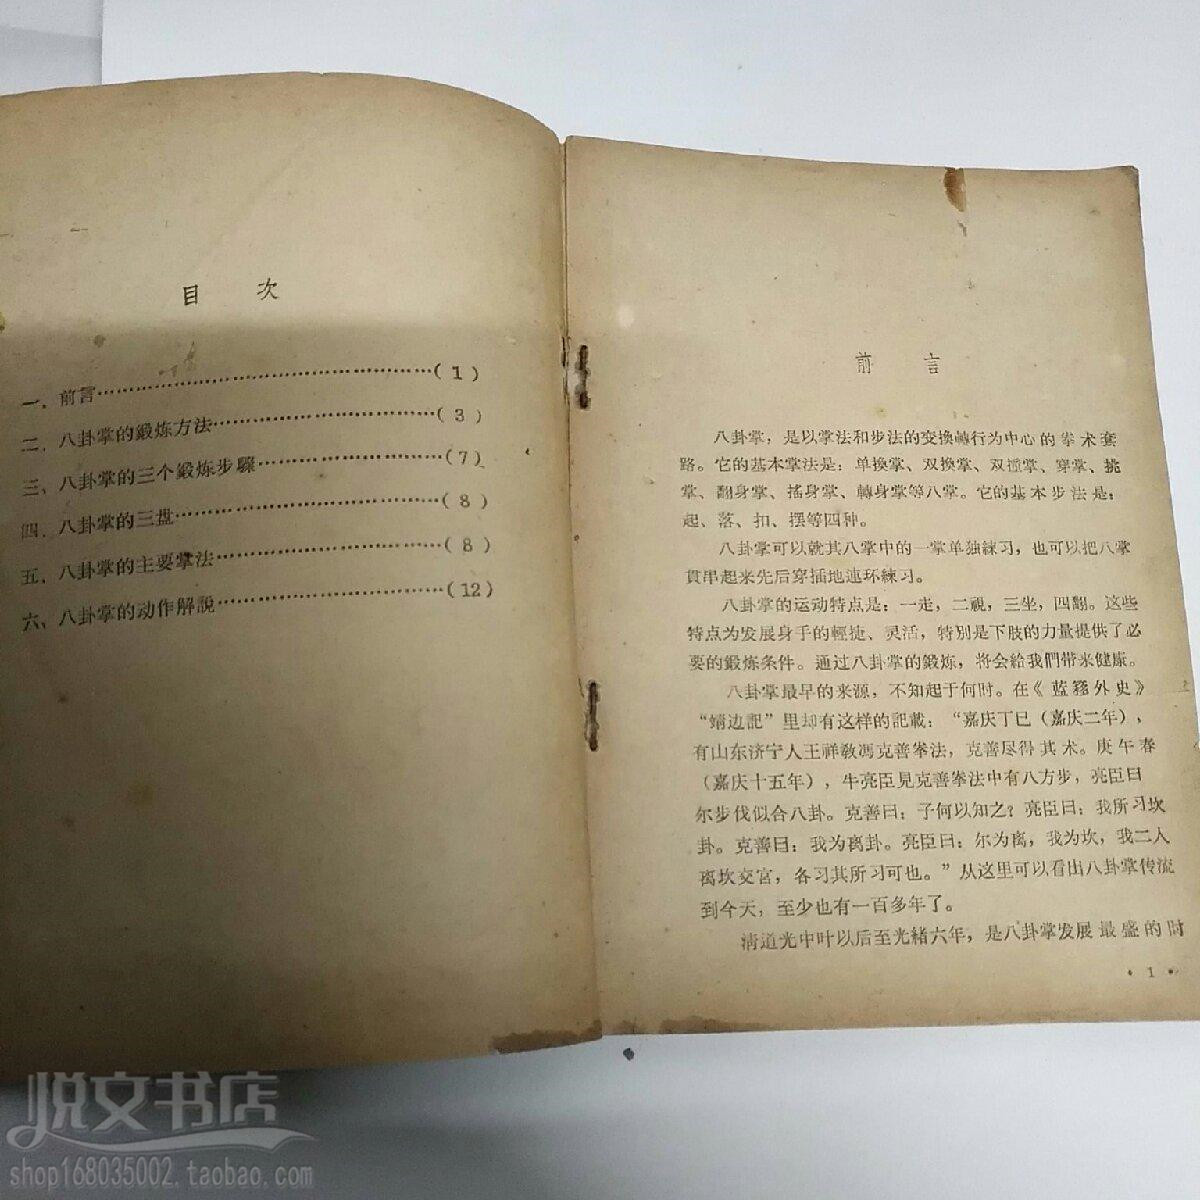 目 次
一、前言……………………………………(1)
二、八卦掌的鍛炼方法……………………(3)
三、八卦掌的三个鍛炼步驟………………(7)
四、八卦掌的三盘…………………………(8)
五、八卦掌的主要掌法……………………(8)
六、八卦掌的动作解說……………………(12)
前 言
八卦掌，是以掌法和步法的交換轉行为中心的拳术套
路。它的基本掌法是：单換掌、双換掌、双撞掌、穿掌、挑
掌、翻身掌、搖身掌、轉身掌等八掌。它的基本步法是：
起、落、扣、摆等四种。
八卦掌可以就其八掌中的一掌单独練习，也可以把八掌
貫串起来先后穿插地連环練习。
八卦掌的运动特点是：一走，二視，三坐，四翻。这些
特点为发展身手的輕捷、灵活，特別是下肢的力量提供了必
要的鍛炼条件。通过八卦掌的鍛炼，将会給我們带来健康。
八卦掌最早的来源，不知起于何时。在《蓝簃外史》
“靖边記”里却有这样的記載：“嘉庆丁巳（嘉庆二年），
有山东济宁人王祥教馮克善拳法，克善尽得其术。庚午春
（嘉庆十五年），牛亮臣見克善拳法中有八方步，亮臣曰
尔步伐似合八卦。克善曰：子何以知之？亮臣曰：我所习坎
卦。克善曰：我为离卦。亮臣曰：尔为离，我为坎，我二人
离坎交宮，各习其所习可也。”从这里可以看出八卦掌传流
到今天，至少也有一百多年了。
清道光中叶以后至光緒六年，是八卦掌发展最盛的时
• 1 •
悦文书店
shop168035002.taobao.com